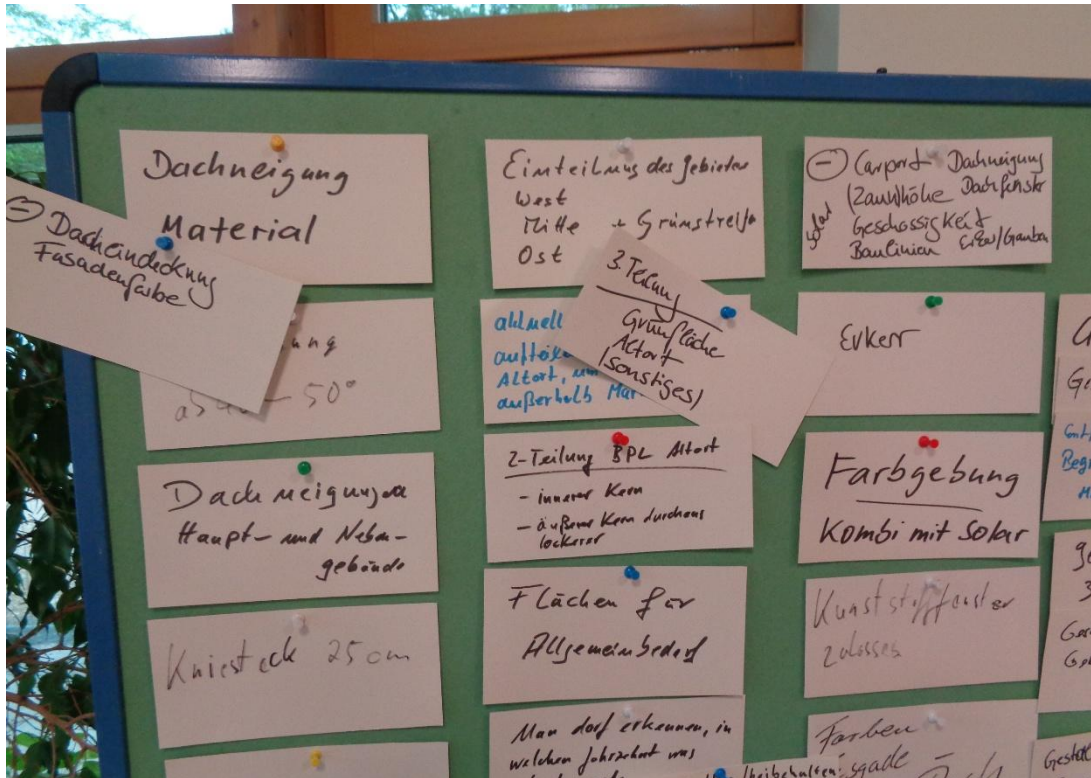 Dachneigung
Material
⊖ Dacheindeckung
Fasadenfarbe
ung
50°
Dachneigungen
Haupt- und Neben-
gebäude
Kniestock 25 cm
Einteilung des Gebietes
West
Mitte → Grünstreifen
Ost
3. Teilung
Grünfläche
Altort
(sonstiges)
aktuell
Altort,
außerhalb
2-Teilung BPL Altort
- innerer Kern
- äußerer Kern durchaus
lockerer
Flächen für
Allgemeinbedarf
Man darf erkennen, in
welchem Jahrzehnt was
⊖ Carport Dachneigung
Solar (Zaun)höhe Dachfenster
Geschossigkeit
Baulinien Erker/Gauben
Erker
Farbgebung
Kombi mit Solar
Kunststofffenster
zulassen
Farben
beibehalten